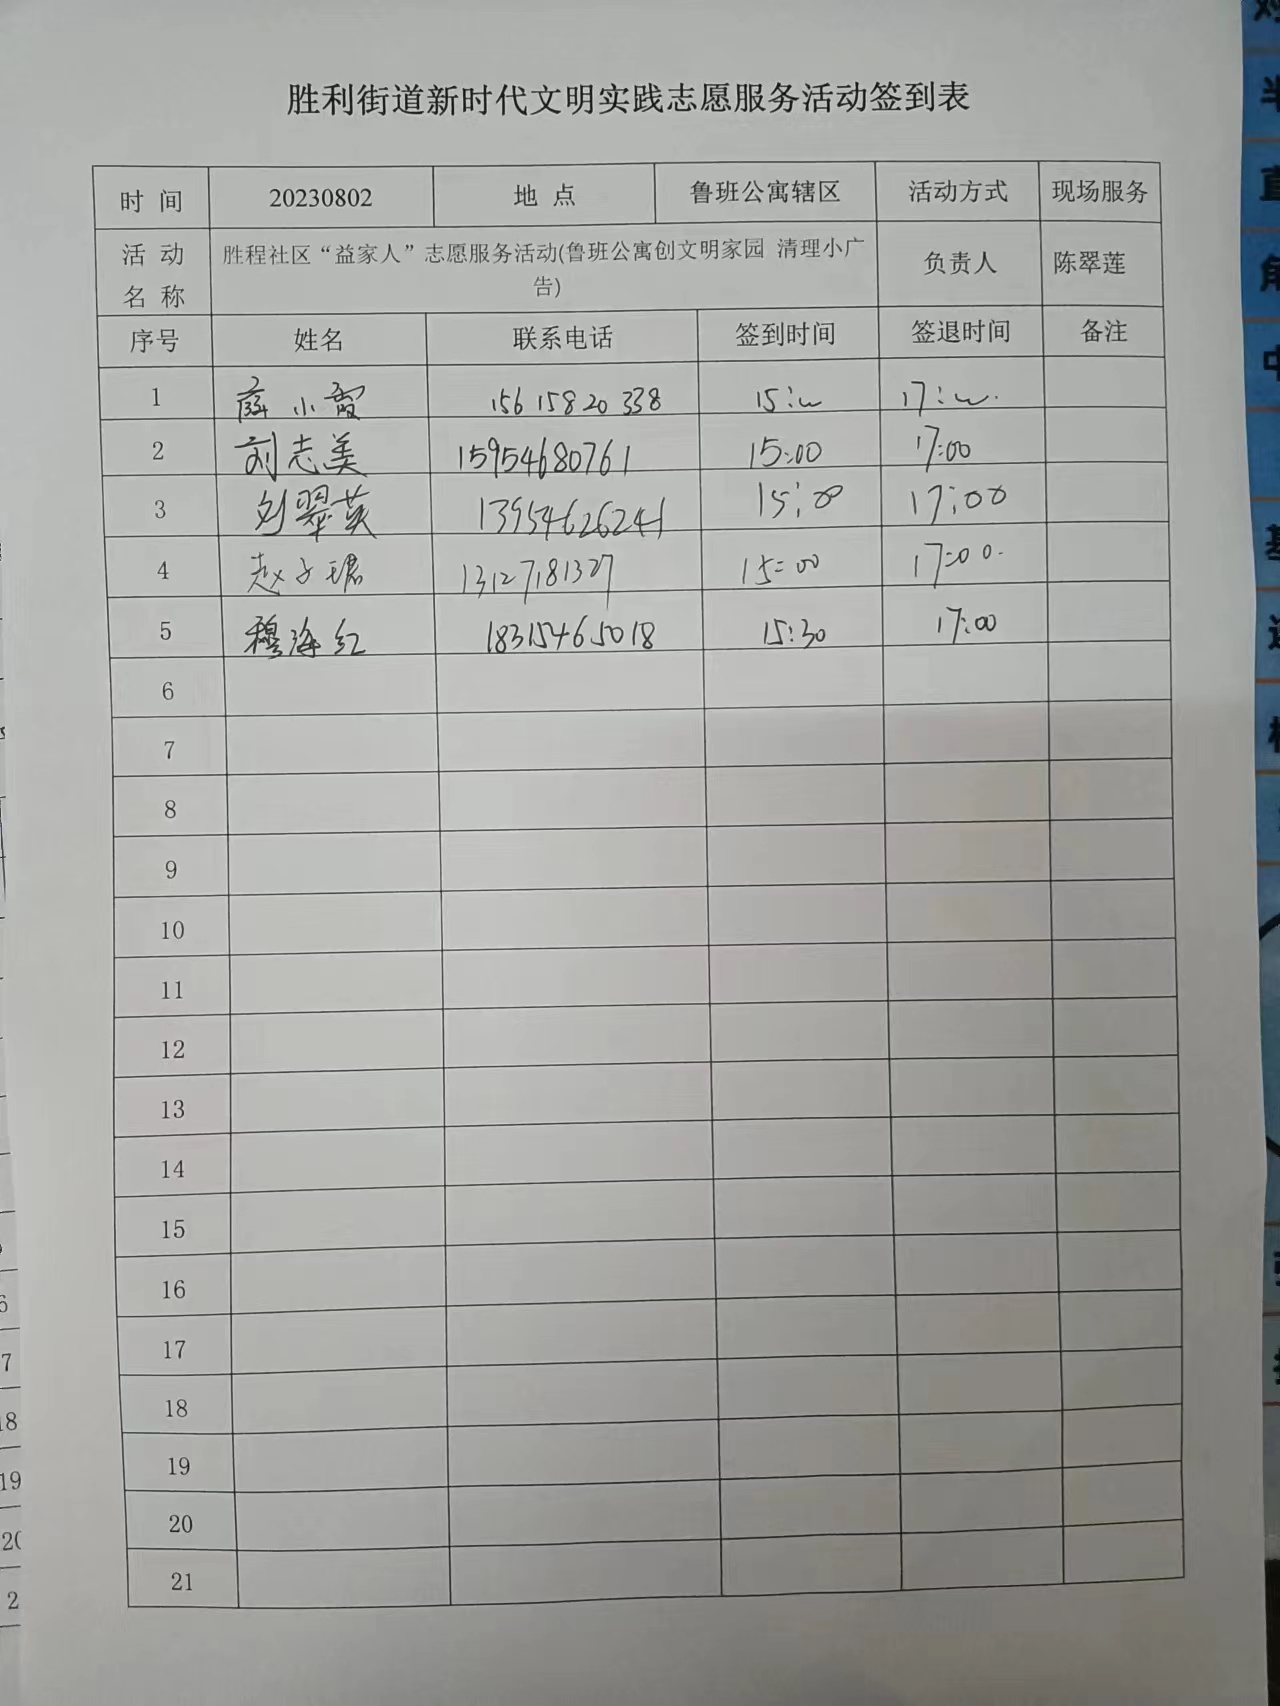 胜利街道新时代文明实践志愿服务活动签到表
时 间 20230802 地 点 鲁班公寓辖区 活动方式 现场服务
活 动 名 称 胜程社区“益家人”志愿服务活动(鲁班公寓创文明家园 清理小广告) 负责人 陈翠莲
序号 姓名 联系电话 签到时间 签退时间 备注
1 薛小霞 15615820338 15:00 17:00
2 刘志美 15954680761 15:00 17:00
3 刘翠英 13954626241 15:00 17:00
4 赵子珺 13127181327 15:00 17:00
5 穆海红 18315465018 15:30 17:00
6
7
8
9
10
11
12
13
14
15
16
17
18
19
20
21